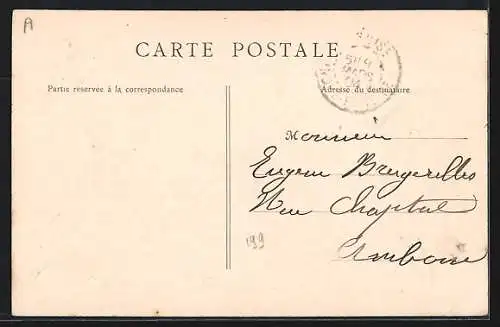 A
CARTE POSTALE
Partie réservée à la correspondance
Adresse du destinataire
Monsieur
Eugène Brugerolles
Rue Chaptal
199